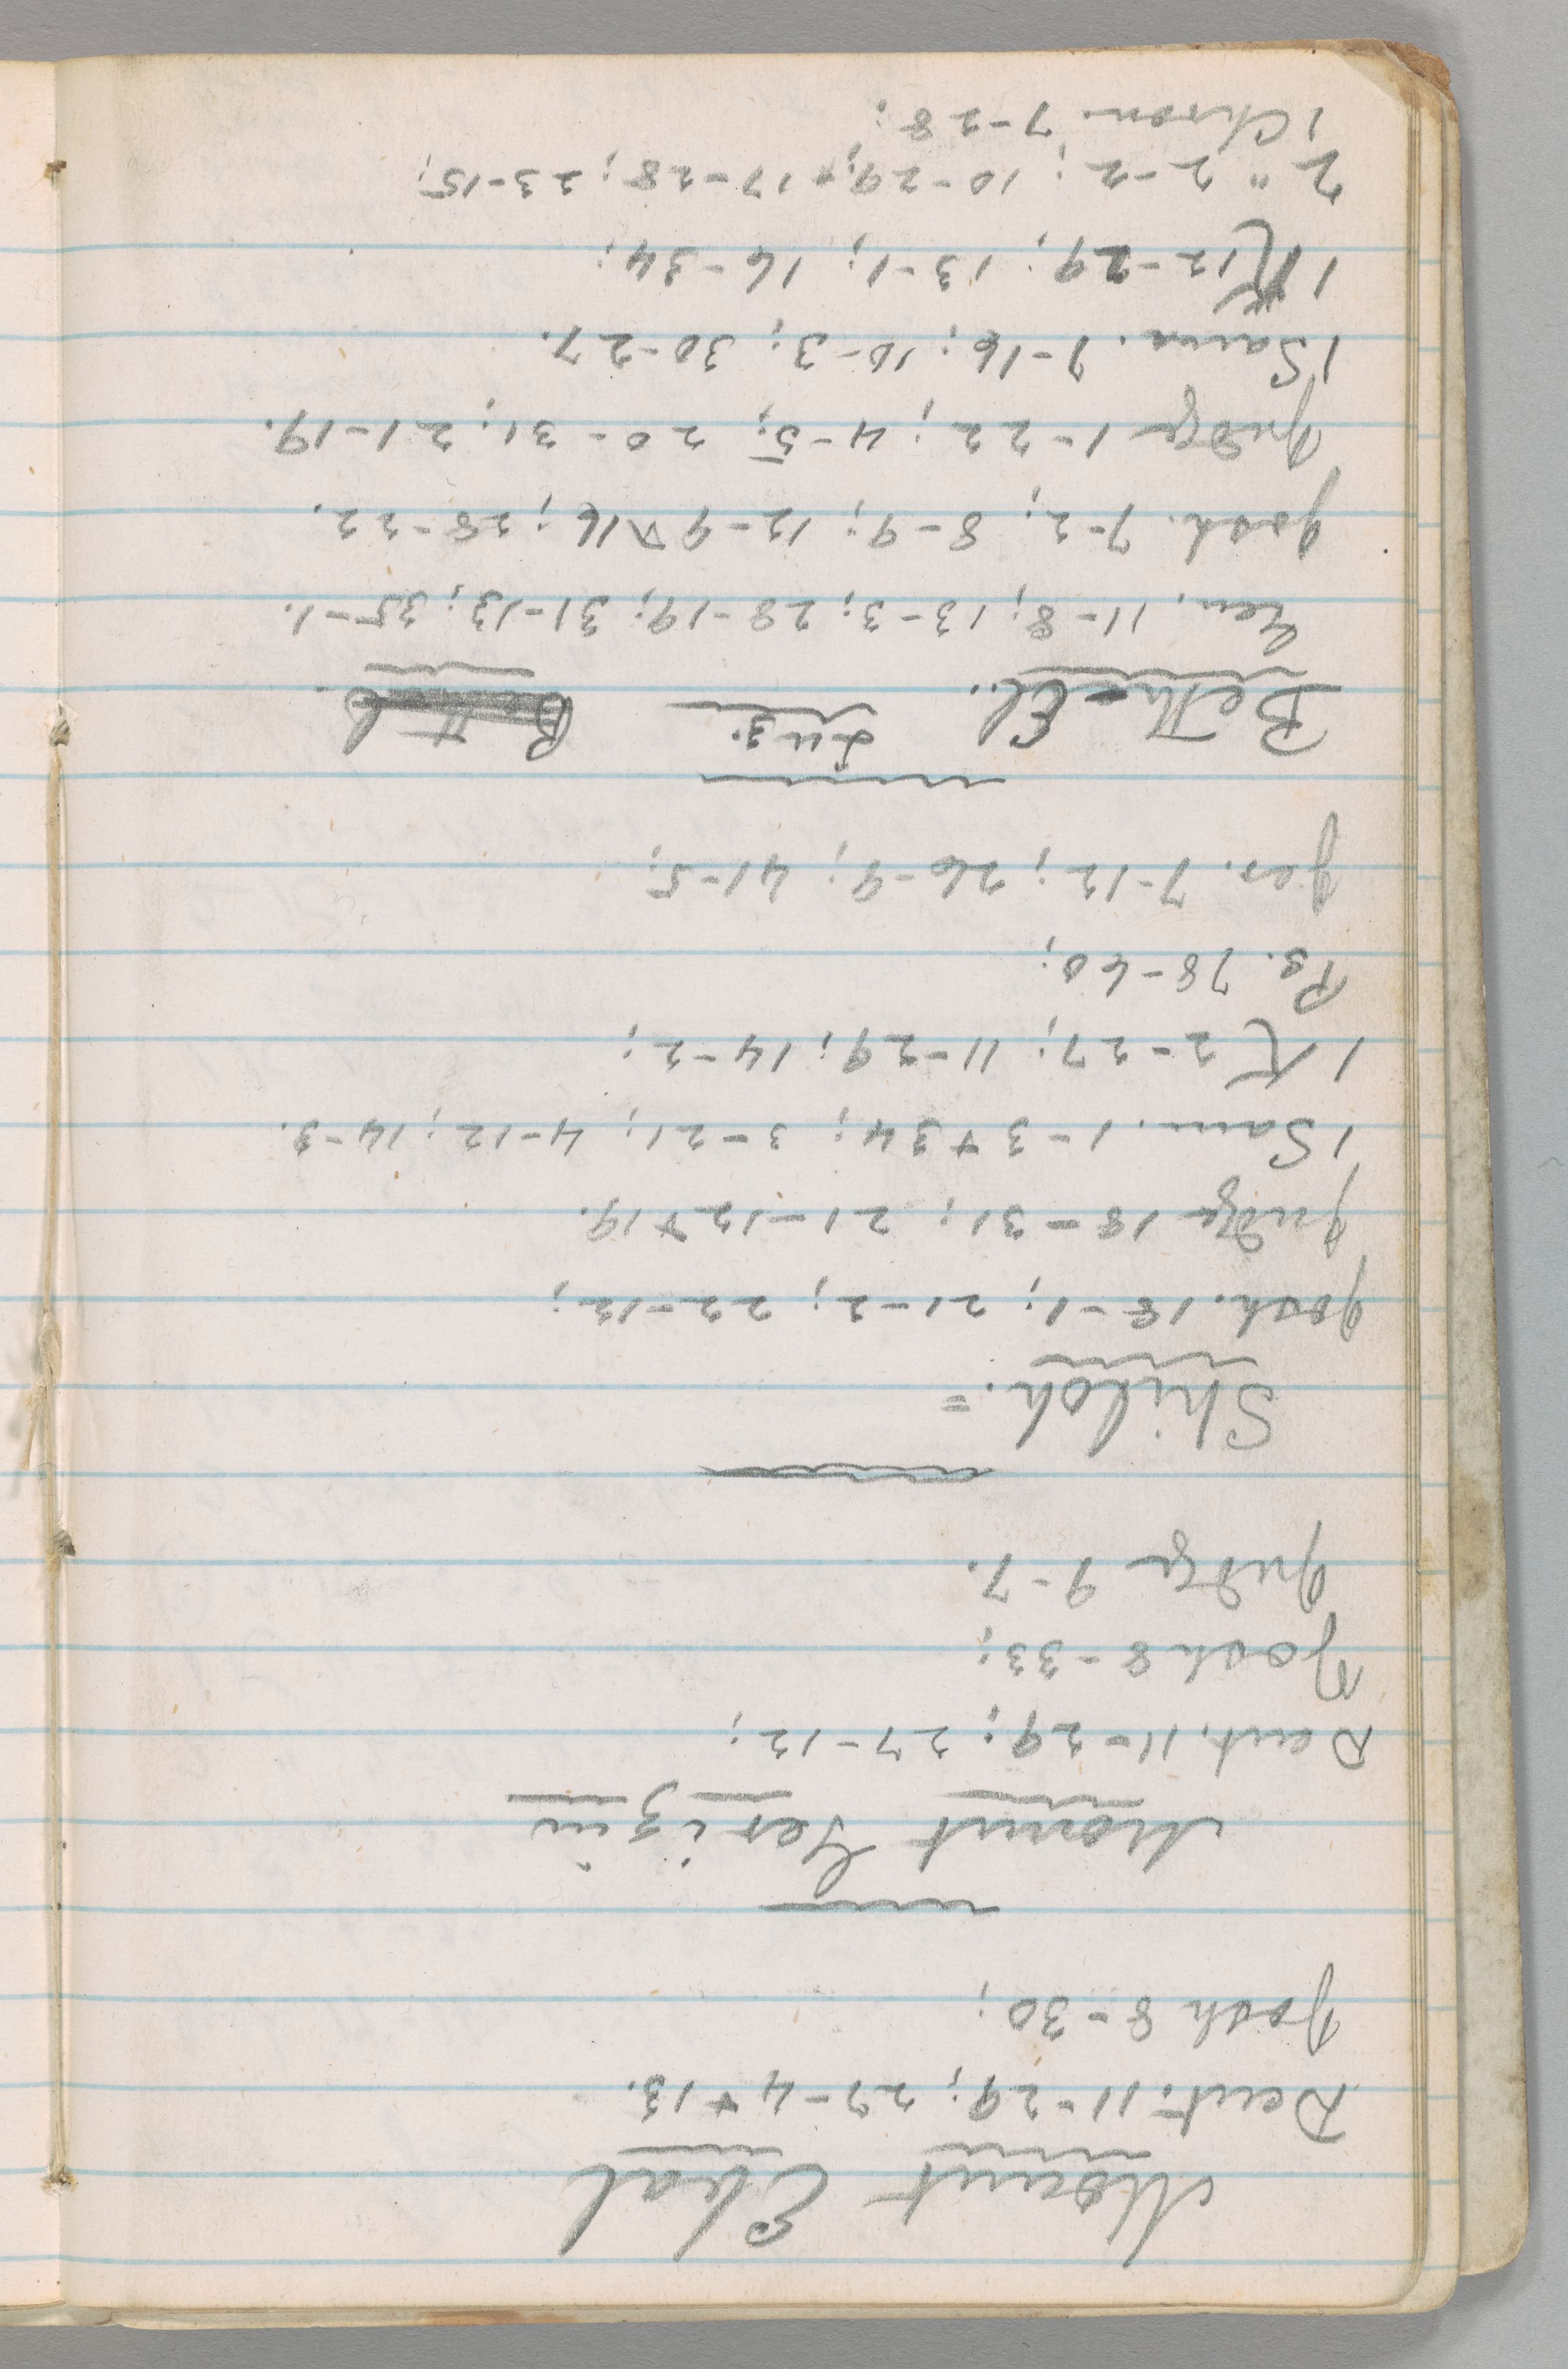 Mount Ebal
Deut. 11-29; 27-4+13.
Josh 8-30;
Mount Gerizim
Deut. 11-29; 27-12;
Josh 8-33;
Judge 9-7.
Shiloh. =
Josh. 18-1; 21-2; 22-12;
Judge 18-31; 21-12+19.
1 Sam. 1-3+34; 3-21; 4-12; 14-3.
1 K 2-27; 11-29; 14-2;
Ps. 78-60;
Jer. 7-12; 26-9; 41-5;
Beth-El. Luz. Bethel.
Gen. 11-8; 13-3; 28-19; 31-13; 35-1.
Josh. 7-2; 8-9; 12-9+16; 28-22.
Judge 1-22; 4-5; 20-31; 21-19.
1 Sam. 7-16; 10-3; 30-27.
1 K 12-29; 13-1; 16-34;
2 " 2-2; 10-29; +17-28; 23-15;
1 Chron. 7-28;